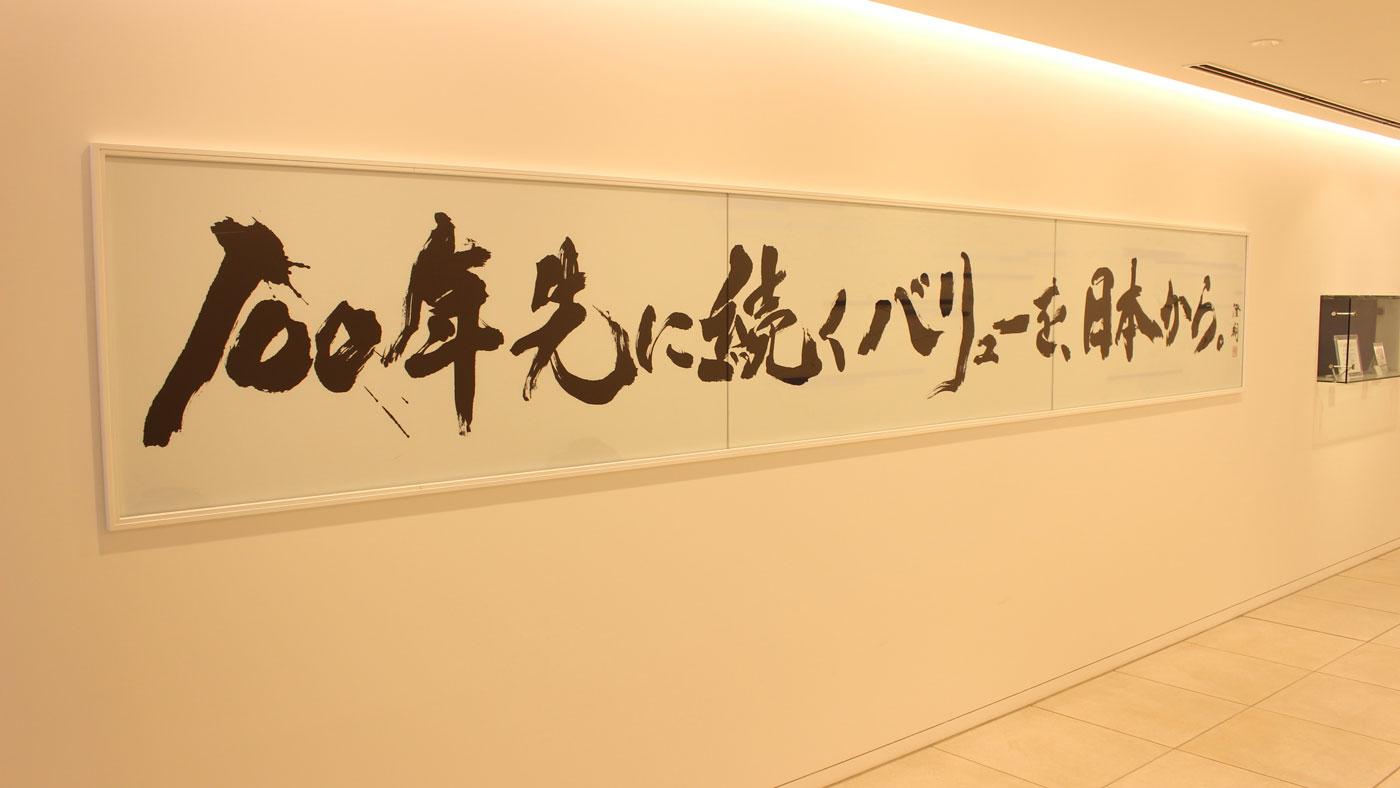 100年先に続くバリューを、日本から。